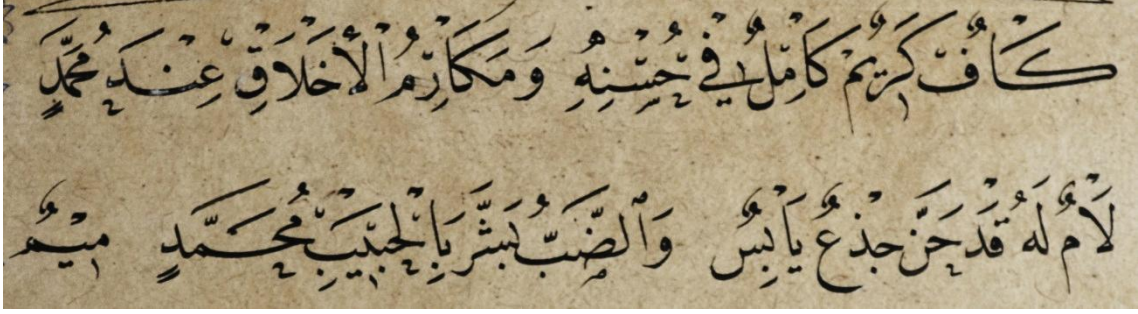 كَافٌ كَرِيمٌ كَامِلٌ فِي حُسْنِهِ وَمَكَارِمُ الْأَخْلَاقِ عِنْدَ مُحَمَّدٍ
لَامٌ لَهُ قَدْ حَنَّ جِذْعٌ يَابِسٌ وَالضَّبُّ بَشَّرَ بِالْحَبِيبِ مُحَمَّدٍ مِيمٌ